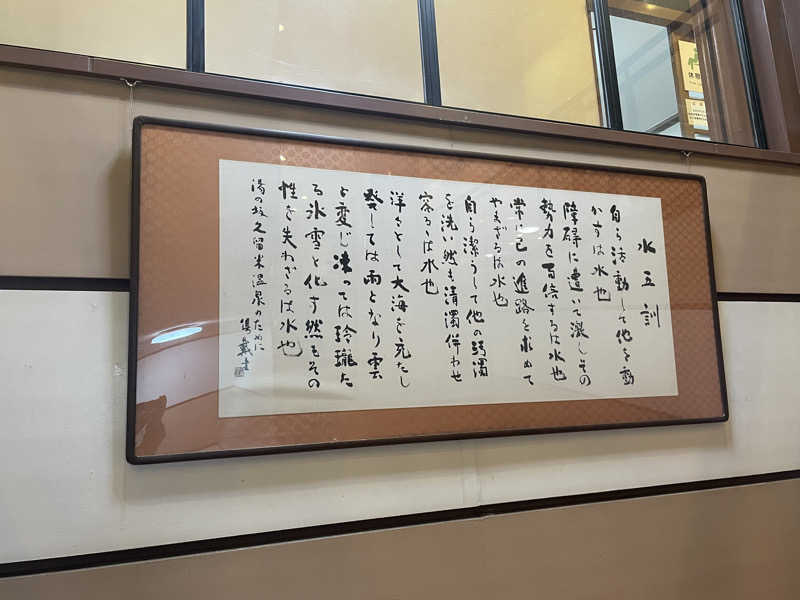 水五訓
自ら活動して他を動
かすは水也
障碍に遭いて激しその
勢力を百倍するは水也
常に己の進路を求めて
やまざるは水也
自ら潔うして他の汚濁
を洗い然も清濁併わせ
容るゝは水也
洋々として大海を充たし
発しては雨となり雲
と変じ凍っては玲瓏た
る氷雪と化す然もその
性を失わざるは水也
湯の坂久留米温泉のために